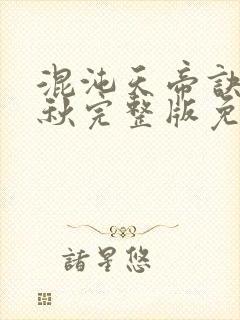 混沌天帝訣
秋完整版免
諸星悠